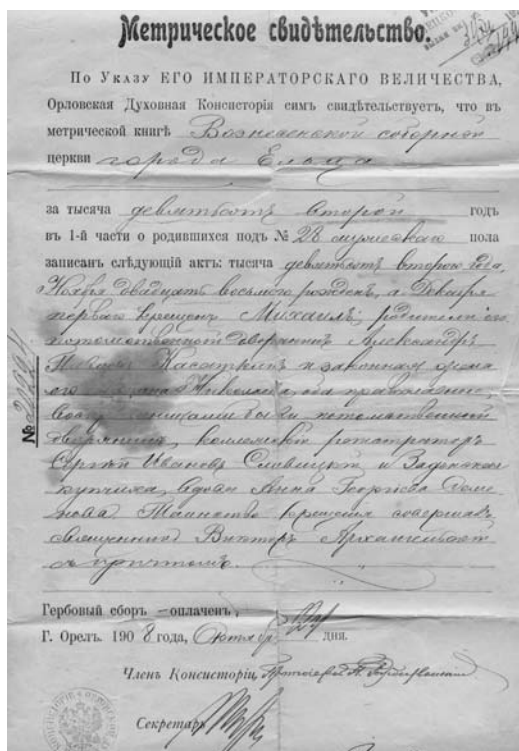 Метрическое свидѣтельство.
По Указу ЕГО ИМПЕРАТОРСКАГО ВЕЛИЧЕСТВА,
Орловская Духовная Консисторія симъ свидѣтельствуетъ, что въ
метрической книгѣ Вознесенской соборной
церкви города Ельца
за тысяча девятьсотъ второй годъ
въ 1-й части о родившихся подъ № 28 мужескаго пола
записанъ слѣдующій актъ: тысяча девятьсотъ второго года,
Ноября двадцать восьмого рожденъ, а Декабря
перваго крещенъ Михаилъ; родители его:
потомственный дворянинъ Александръ
Касаткинъ и законная жена
его Николаева, оба православные,
были потомственный
дворянинъ, коллежскій регистраторъ
Сергѣй Ивановъ Славицкій и Задонская
купчиха, вдова Анна Георгіева
Таинство крещенія совершалъ
священникъ Викторъ Архангельскій
съ причтомъ.
Гербовый сборъ – оплаченъ,
Г. Орелъ. 1908 года, Октября дня.
Членъ Консисторіи,
Секретарь